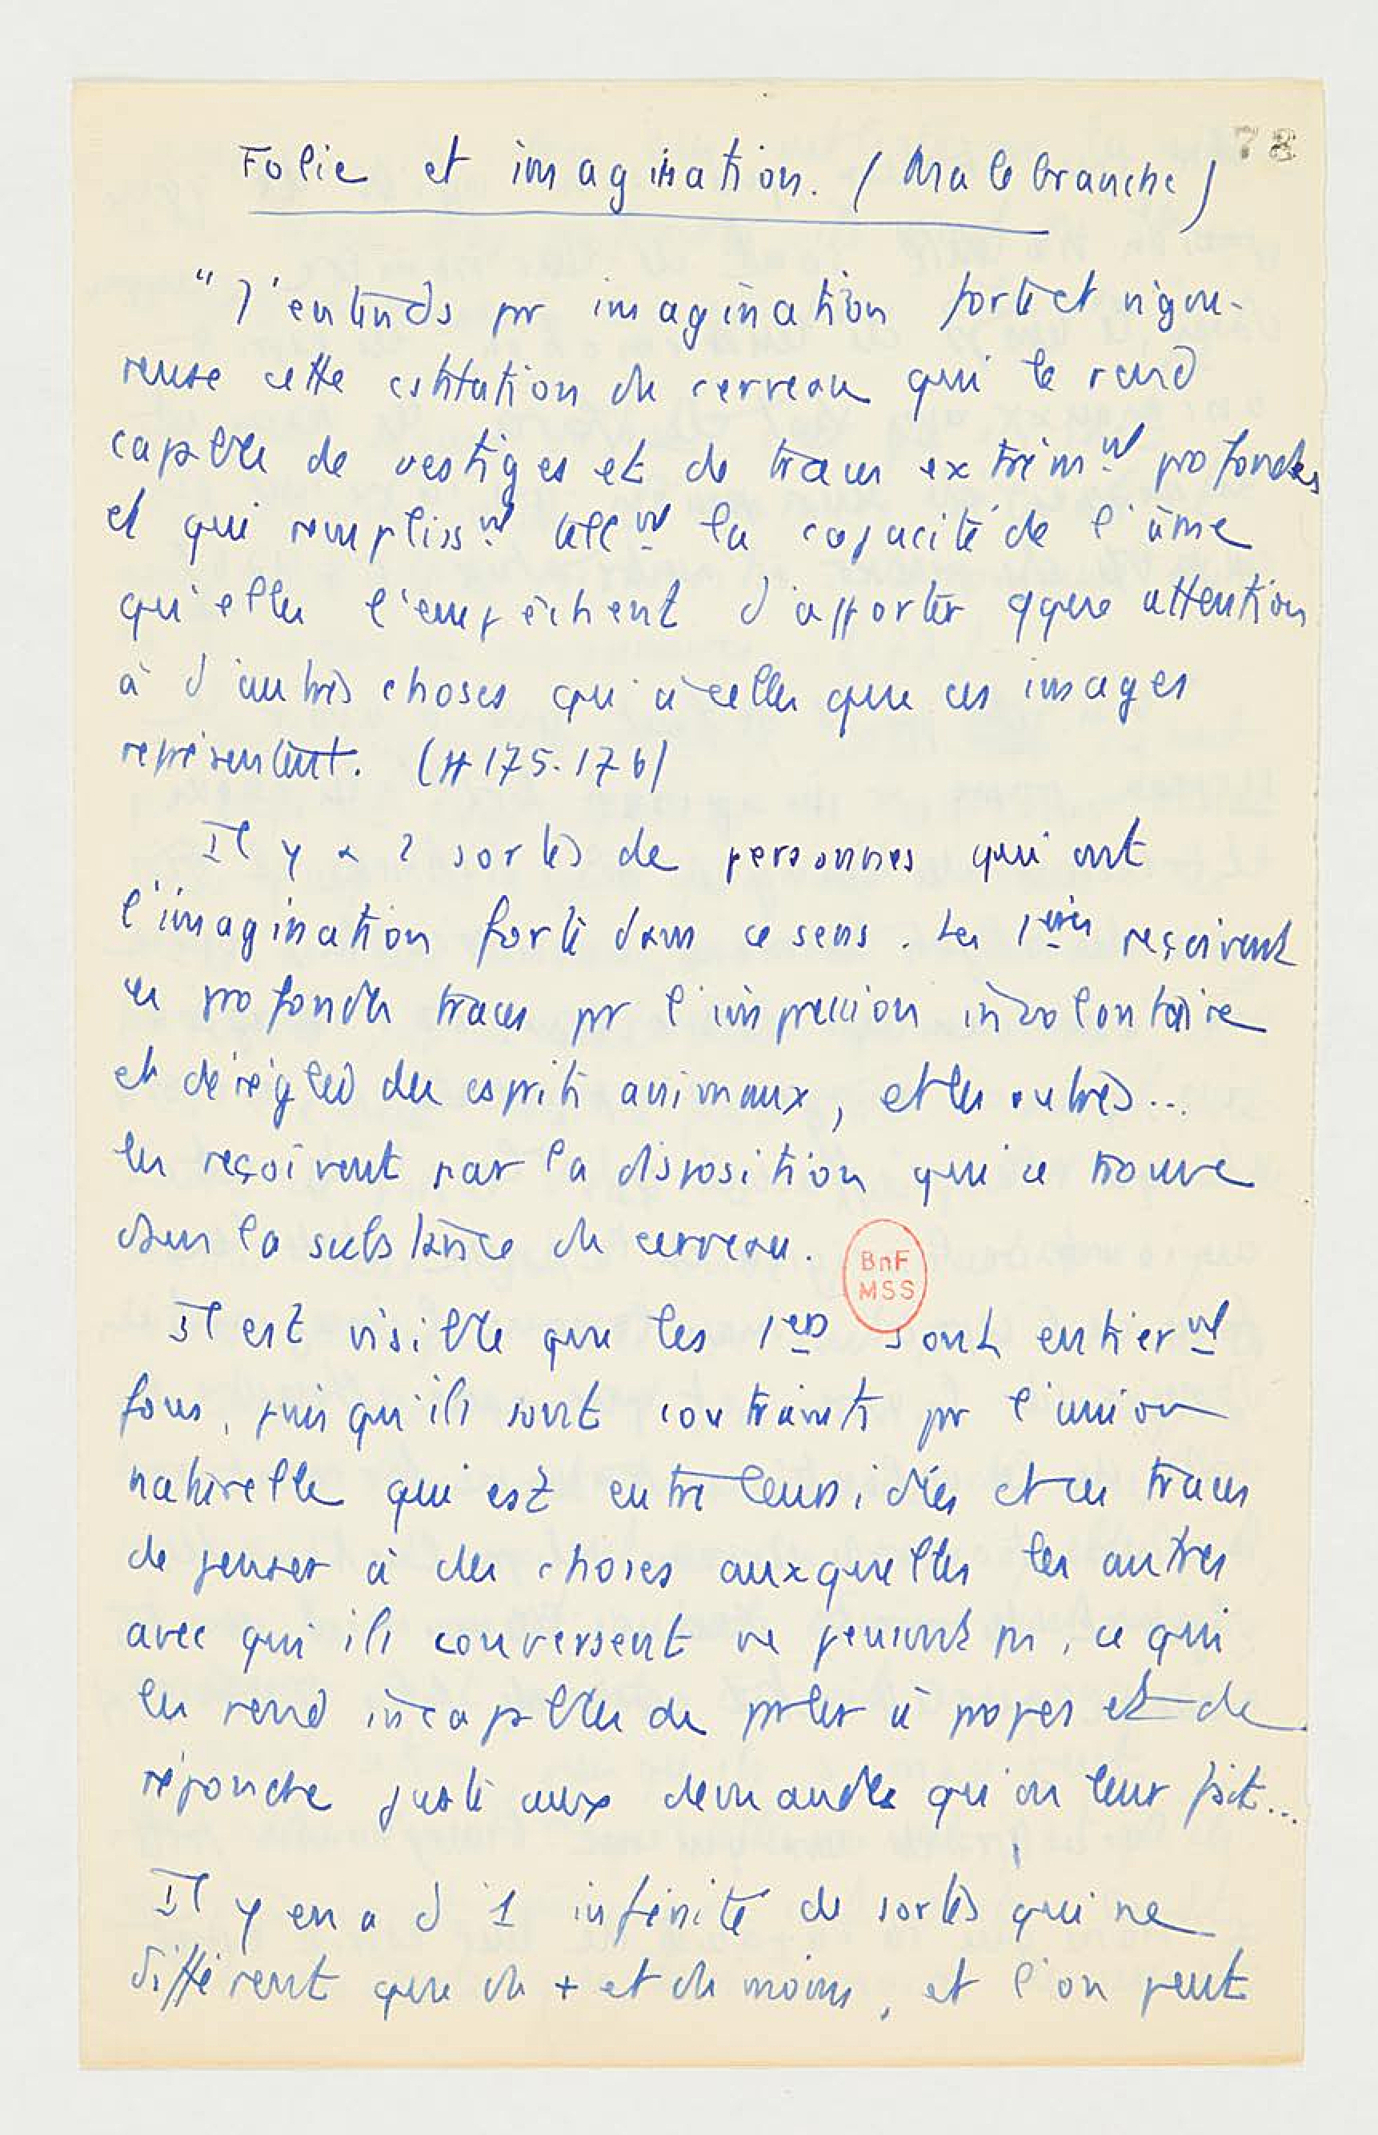 78
Folie et imagination. (Malebranche)
"J'entends pr imagination forte et vigou-
reuse cette cstitution du cerveau qui le rend
capable de vestiges et de traces extrêmnt profondes
et qui remplissnt tellnt la capacité de l'âme
qu'elles l'empêchent d'apporter qque attention
à d'autres choses qu'à celles que ces images
représentent. (175-176)
Il y a 2 sortes de personnes qui ont
l'imagination forte dans ce sens. Les 1ères reçoivent
ces profondes traces pr l'impression involontaire
et déréglée des esprits animaux, et les autres...
les reçoivent par la disposition qui se trouve
dans la substance du cerveau.
BnF
MSS
Il est visible que les 1ers sont entièrnt
fous, puisqu'ils sont contraints pr l'union
naturelle qui est entre leurs idées et ces traces
de penser à des choses auxquelles les autres
avec qui ils conversent ne pensent ps, ce qui
les rend incapbles de prler à propos et de
répondre juste aux demandes qu'on leur fait...
Il y en a d'1 infinité de sortes qui ne
diffèrent que du + et du moins, et l'on peut